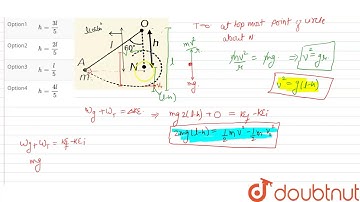 Option1 h = 3l/5
Option2 h = 2l/5
Option3 h = l/5
Option4 h = 4l/5
O
l
60°
h
l
N
A
m
(l-h)
T=0 at top most point of circle
about N
mv²/r = mg ⇒ v² = gr
mg
v² = g(l-h)
Wg + WT = ΔKE ⇒ mg2(l-h) + 0 = KEf - KEi
Wg + WT = KEf - KEi
mg
doubtnut